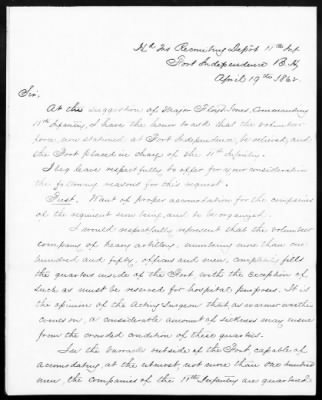 Hd Qrs Recruiting Depôt 11th Inf
Fort Independence B. H.
April 19th 1862.
Sir.
At the suggestion of Major Floyd Jones, Commanding
11th Infantry, I have the honor to ask that the volunteer
force, now stationed at Fort Independence, be relieved, and
the Fort placed in charge of the 11th Infantry.
I beg leave respectfully to offer for your consideration
the following reasons for this request.
First. Want of proper accomodation for the companies
of the regiment now being, and to be organized.
I would respectfully represent that the volunteer
company of heavy artillery, numbering more than one
hundred and fifty, officers and men, completely fills
the quarters inside of the Fort with the exception of
such as must be reserved for hospital purposes. It is
the opinion of the Acting Surgeon that as warmer weather
comes on, a considerable amount of sickness may ensue
from the crowded condition of these quarters.
In the barracks outside of the Fort, capable of
accomodating, at the utmost, not more than one hundred
men, the companies of the 11th Infantry are quartered.